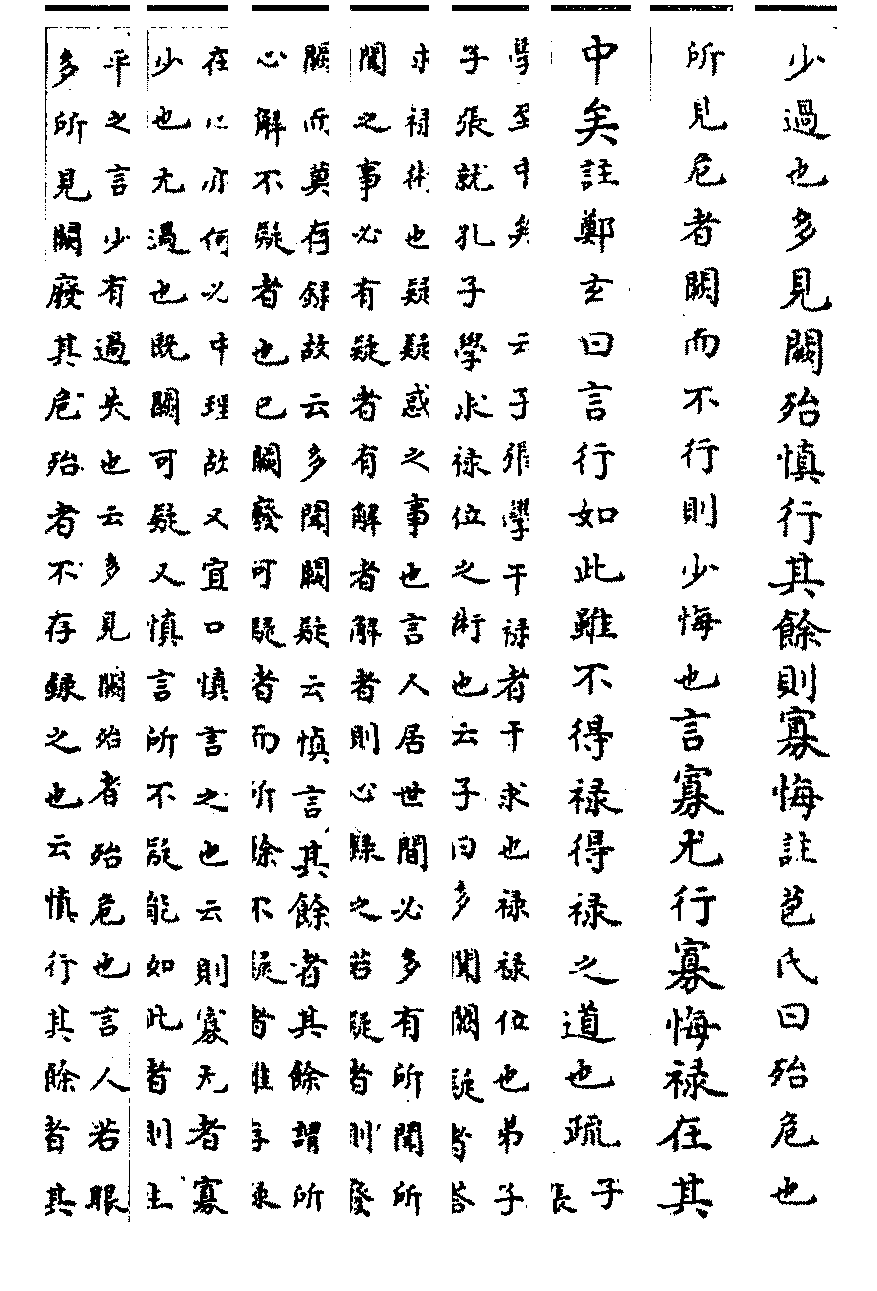 少過也多見闕殆慎行其餘則寡悔註苞氏曰殆危也
所見危者闕而不行則少悔也言寡尤行寡悔禄在其
中矣註鄭玄曰言行如此雖不得禄得禄之道也疏子張
學至中矣 云子張學干禄者干求也禄禄位也弟子
子張就孔子學求禄位之術也云子曰多聞闕疑者答
求禄術也疑疑惑之事也言人居世間必多有所聞所
聞之事必有疑者有解者解者則心錄之若疑者則廢
闕而莫存錄故云多聞闕疑云慎言其餘者其餘謂所
心解不疑者也已闕廢可疑者而所餘不疑者雖存錄
在心亦何必中理故又宜口慎言之也云則寡尤者寡
少也尤過也既闕可疑又慎言所不疑能如此者則生
平之言少有過失也云多見闕殆者殆危也言人若眼
多所見闕廢其危殆者不存錄之也云慎行其餘者其